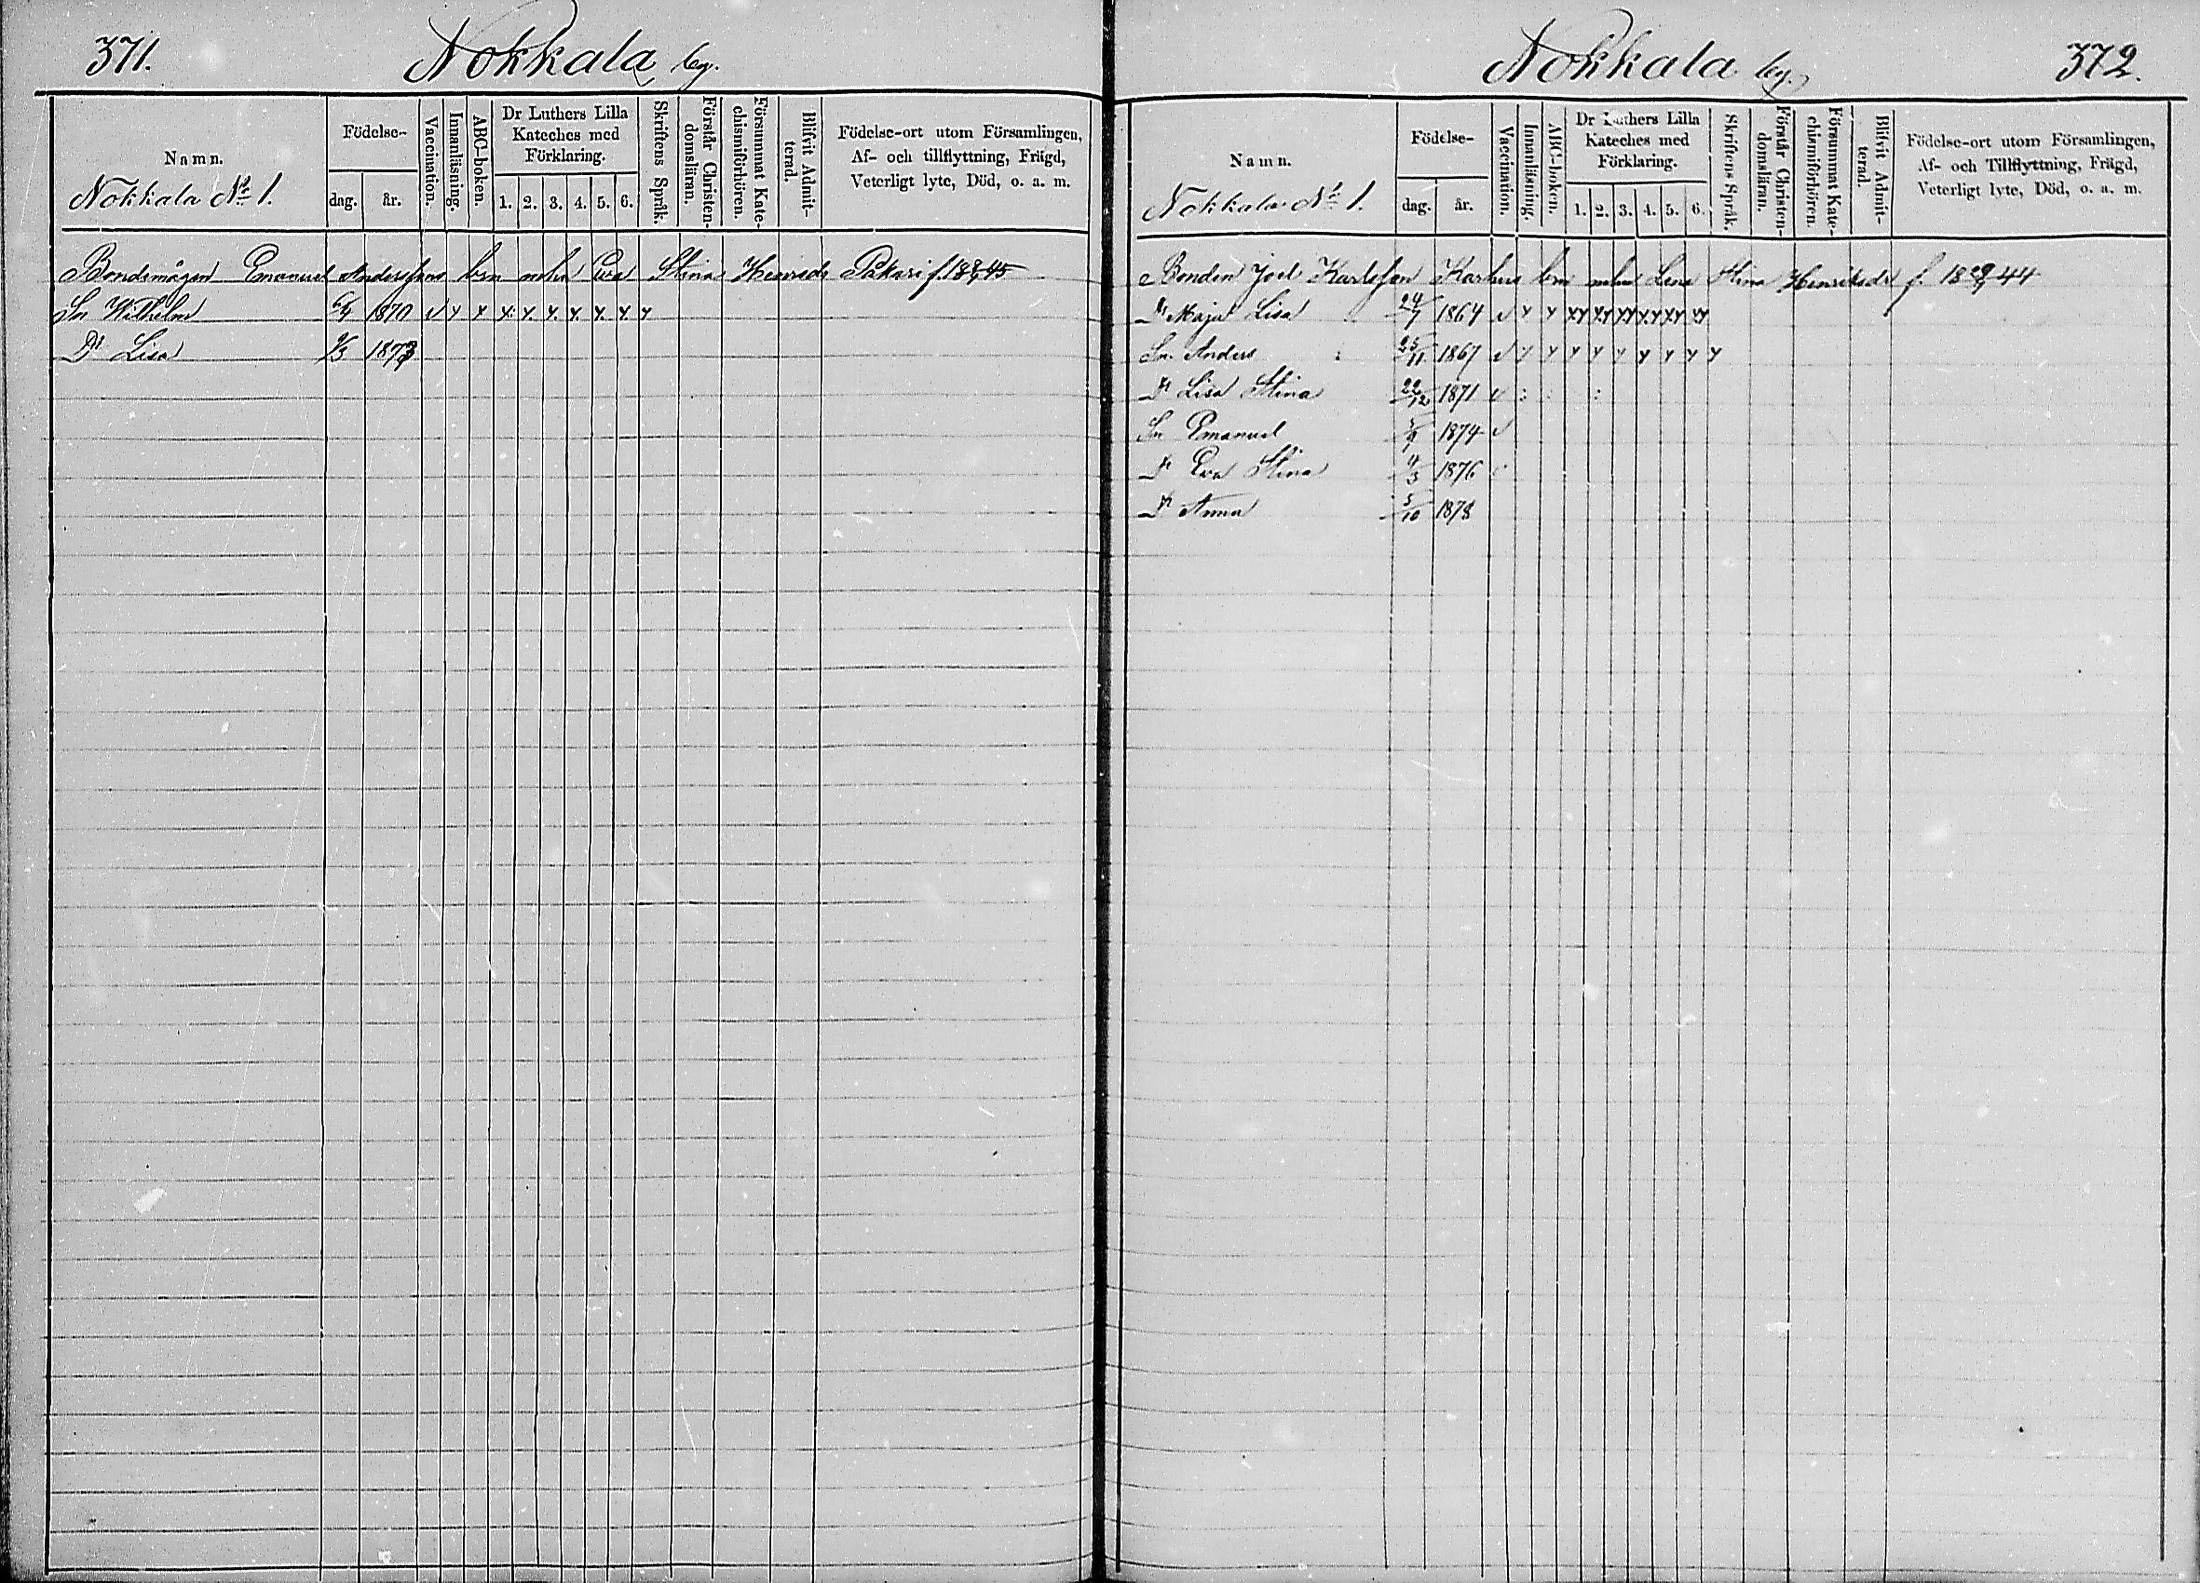 371.
Nokkala by.
Namn.
Nokkala No 1.
Födelse-
dag.
år.
Vaccination.
Innanläsning.
ABC-boken.
Dr Luthers Lilla
Kateches med
Förklaring.
1. 2. 3. 4. 5. 6.
Skriftens Språk.
Förstår Christen-
domsläran.
Försummat Kate-
chismiförhören.
Blifvit Admit-
terad.
Födelse-ort utom Församlingen,
Af- och tillflyttning, Frägd,
Veterligt lyte, Död, o. a. m.
Bondemågen Emanuel Anderssons brn mhu Eva Stina Henrsdr Pakari f. 45
Sn Wilhelm 6/4 1870 v y y y. y. y. y. y. y. y
Dr Lisa /3 1873
Nokkala by.
372.
Namn.
Nokkala No 1.
Födelse-
dag.
år.
Vaccination.
Innanläsning.
ABC-boken.
Dr Luthers Lilla
Kateches med
Förklaring.
1. 2. 3. 4. 5. 6.
Skriftens Språk.
Förstår Christen-
domsläran.
Försummat Kate-
chismiförhören.
Blifvit Admit-
terad.
Födelse-ort utom Församlingen,
Af- och Tillflyttning, Frägd,
Veterligt lyte, Död, o. a. m.
Bonden Joel Karlsson Karhus brn mhu Lena Stina Henriksdr f. 44
Dr Maja Lisa 24/7 1864 v y y xy xy xy xy xy xy
Sn. Anders 25/11 1867 v y y y y y y y y y
Dr Lisa Stina 22/12 1871 v : : :
Sn Emanuel 1874 v
Dr Eva Stina 4/3 1876
Dr Anna 5/10 1878